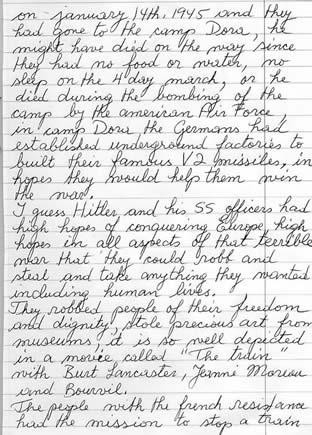 on january 14th, 1945 and they
had gone to the camp Dora, he
might have died on the way since
they had no food or water, no
sleep on the 4 day march, or he
died during the bombing of the
camp by the american Air Force,
in camp Dora the Germans had
established underground factories to
built their famous V2 missiles, in
hopes they would help them win
the war.
I guess Hitler and his SS officers had
high hopes of conquering Europe, high
hopes in all aspects of that terrible
war that they could robb and
steal and take anything they wanted
including human lives.
They robbed people of their freedom
and dignity, stole precious art from
museums, it is so well depicted
in a movie called "The train"
with Burt Lancaster, Jeanne Moreau
and Bourvil.
The people with the french resistance
had the mission to stop a train